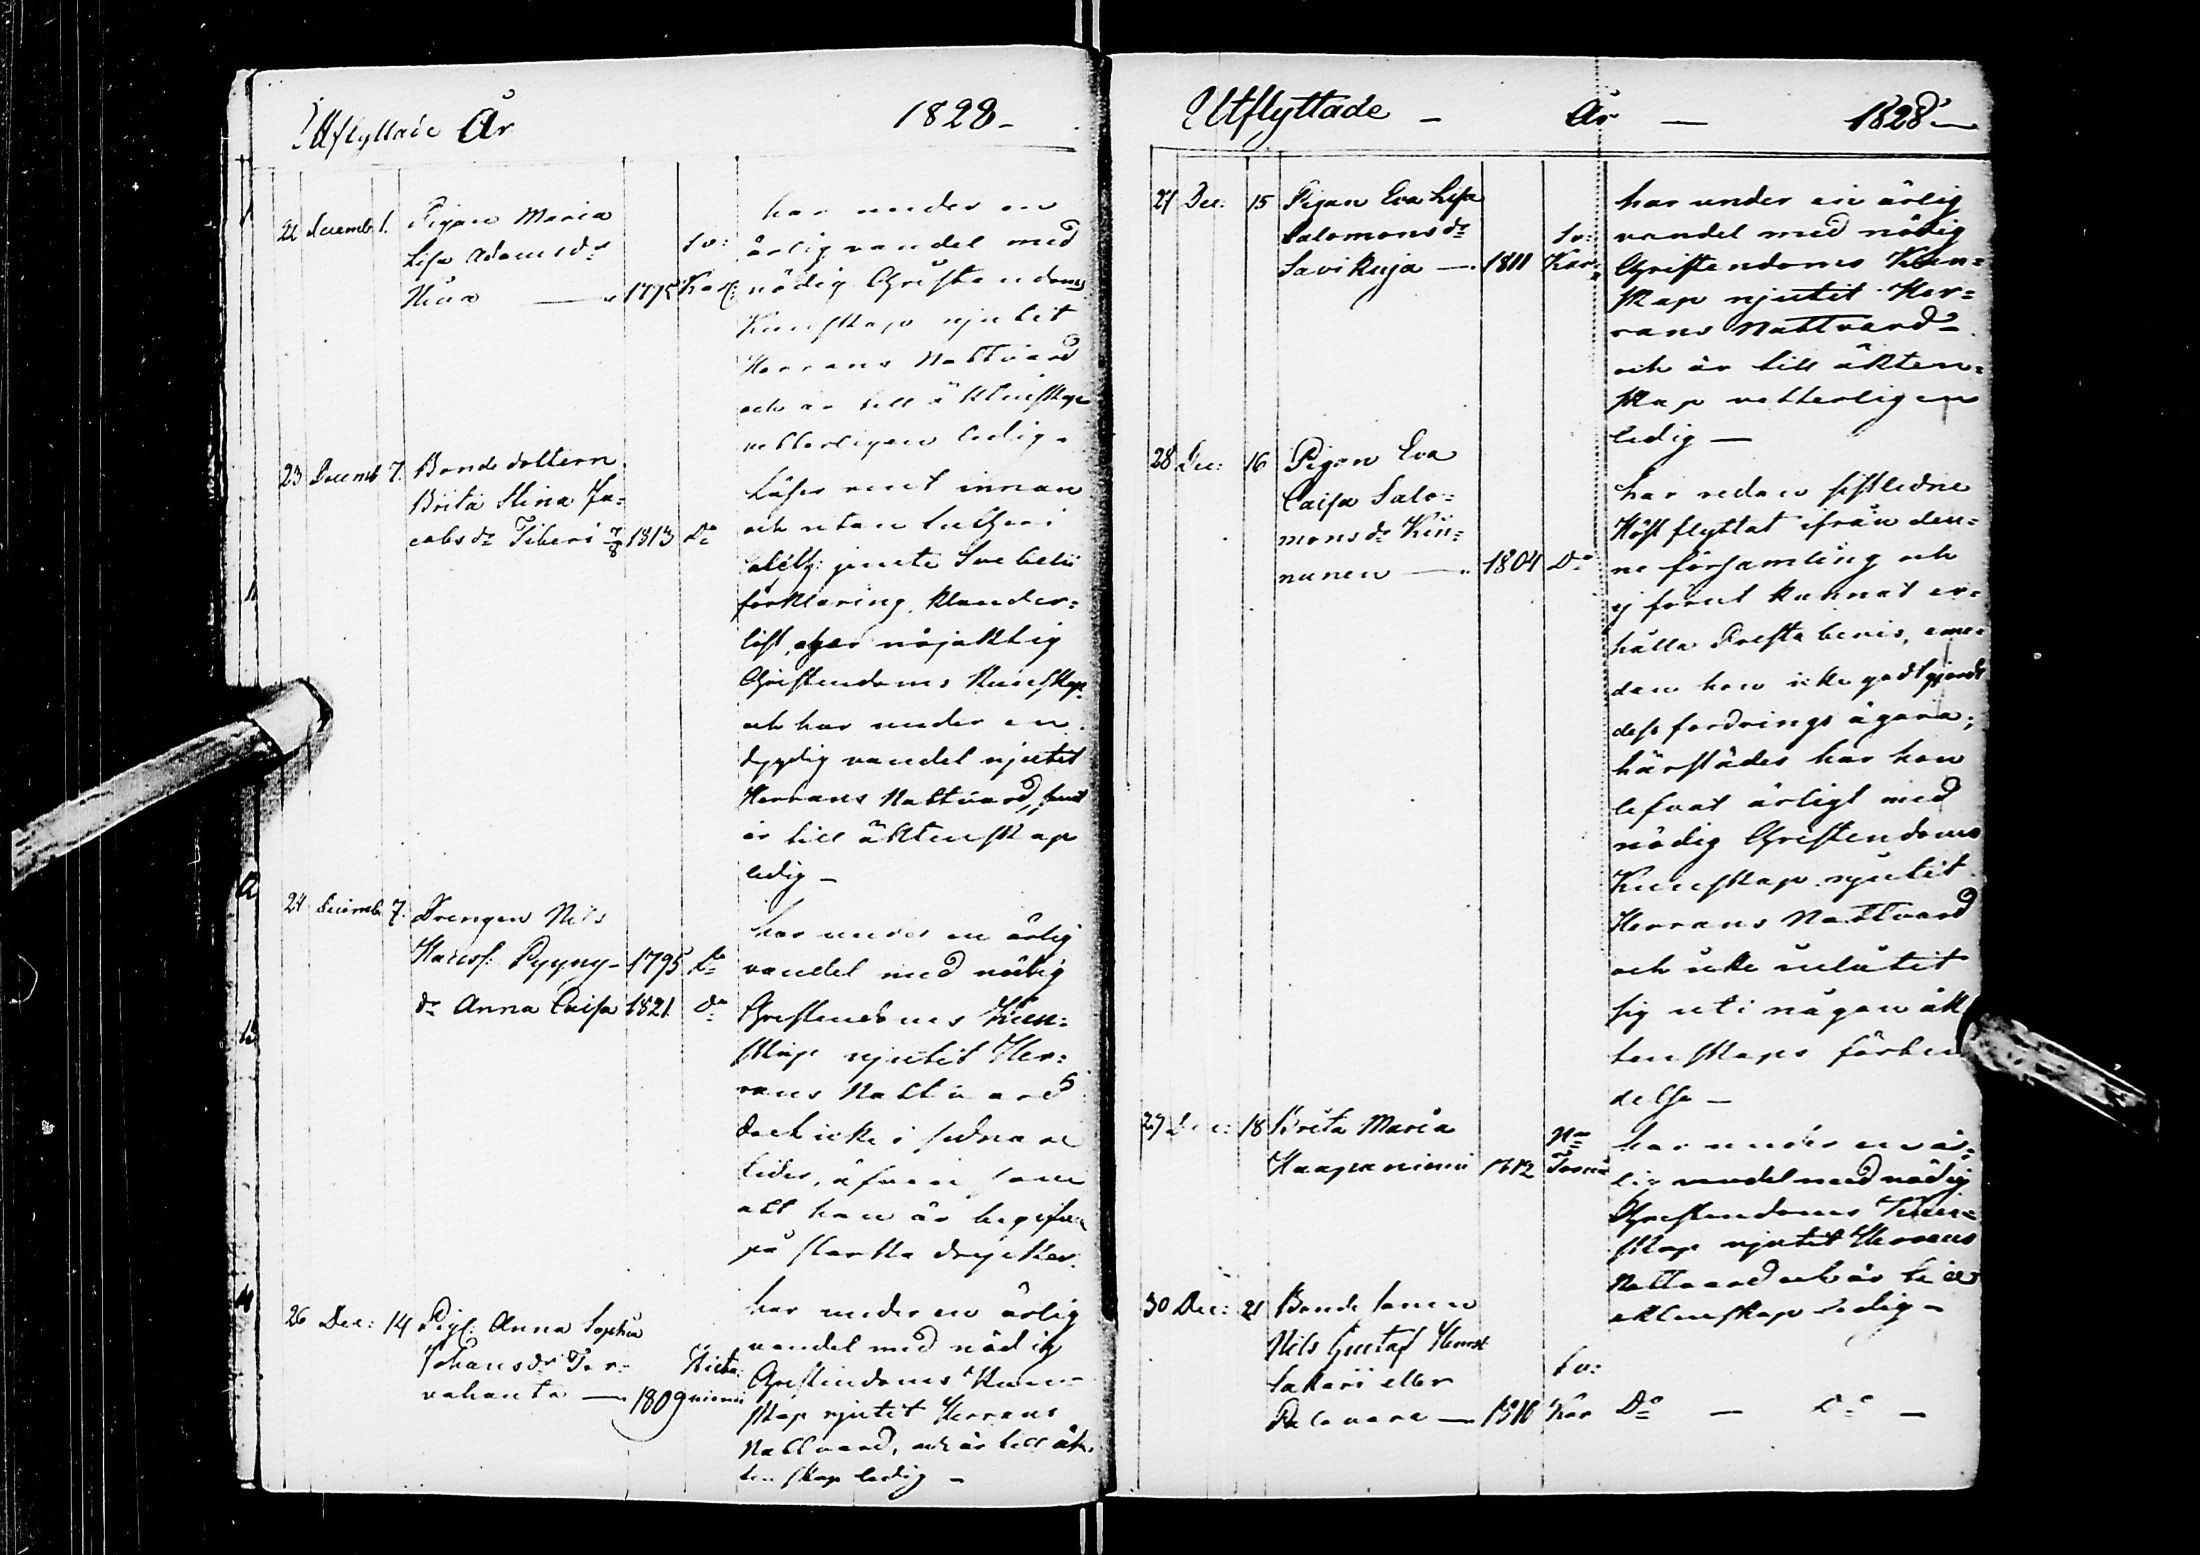 Utflyttade År 1828 -
22 Decemb. 1. Pigan Maria
Lisa Adamsdr
1795
Sv:
Kar:
har under en
ärlig vandel med
nödig Christendoms
Kunskap njutit
Herrans Nattvard
och är till äktenskap
vetterligen ledig.
23 Decemb 7. Bonde dottern
Brita Stina Ja-
cobs dr Tiberi 7/8 1813 Do
Läser rent innan
och utan Lutheri
jemte Svebelii
förklaring, klander-
löst, äger nöjaktig
Christendoms Kunskap
och har under en
dygdig vandel njutit
Herrans Nattvard, samt
är till äktenskap
ledig -
24 Decemb 7. Drengen Nils
Hanss. Pyyny - 1795 Do
dr Anna Caisa 1821. Do
har under en ärlig
vandel med nödig
Christendoms Kun-
skap njutit Her-
rans Nattvard
dock icke i sednare
tider, äfven som
att han är begifven
på starka drycker.
26 Dec: 14 Pig: Anna Sophia
Johansdr Ter-
vahauta — 1809
Hieta-
niemi
har under en ärlig
vandel med nödig
Christendoms Kun-
skap njutit Herrans
Nattvard, och är till äk-
tenskap ledig -
Utflyttade - År — 1828 —
27 Dec: 15 Pigan Eva Lisa
Salomonsdr
Savikuja — 1811
Sv:
Kar:
har under en ärlig
vandel med nödig
Christendoms Kun=
skap njutit Her=
rans Nattvard
och är till äkten=
skap vetterligen
ledig —
28 Dec: 16 Pigan Eva
Caisa Salo=
mons dr Kin=
nunen — 1804 Do
har redan sistledne
Höst flyttat ifrån den=
ne församling och
ej förut kunnat er=
hålla Prestabevis, eme-
dan hon icke godtgjordt
dess fordrings ägare;
härstädes har hon
lefvat ärligt med
nödig Christendoms
Kunskap njutit
Herrans Nattvard
och icke inlåtit
sig uti någon äk
tenskaps förbin
delse —
29 Dec: 18 Brita Maria
Haapaniemi 1812
Torneå
har under en är-
lig vandel med nödig
Christendoms Kun-
skap njutit Herrans
Nattvard och är till
äktenskap ledig -
30 Dec: 21 Bonde sonen
Nils Gustaf Henrs
Sakari eller
Palovara — 1810
Sv:
Kar Do — Do —